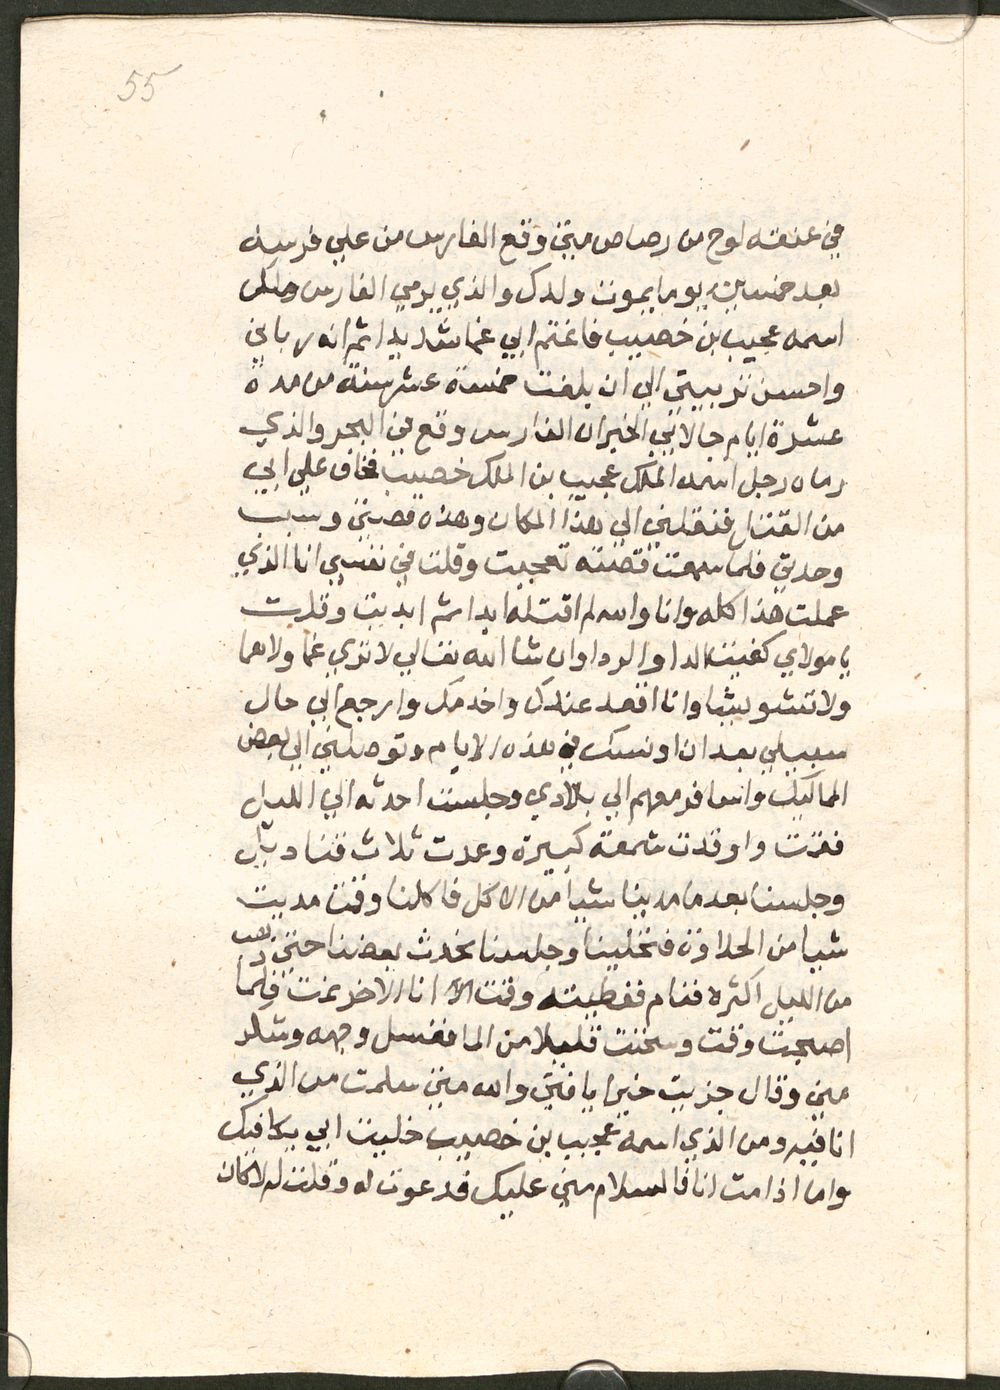 55
في عنقه لوح من رصاص متي وقع الفارس من علي فرسه
بعد خمسين يوما يموت ولدك والذي يرمي الفارس ملك
اسمه عجيب بن خصيب فاغتم ابي غما شديدا ثم انه رباني
واحسن تربيتي الي ان بلغت خمسة عشر سنة من مدة
عشرة ايام جا لابي الخبر ان الفارس وقع في البحر والذي
رماه رجل اسمه الملك عجيب بن الملك خصيب فخاف علي ابي
من القتل فنقلني الي هذا المكان وهذه قصتي وسبب
وحدتي فلما سمعت قصته تعجبت وقلت في نفسي انا الذي
عملت هذا كله وانا والله لم اقتله ابدا ثم ابديت وقلت
يا مولاي كفيت الدا والردا وان شا الله تعالي لا تري غما ولا هما
ولا تشويشا وانا اقعد عندك واخدمك وارجع الي حال
سبيلي بعد ان اونسك في هذه الايام وتوصلني الي بعض
المماليك واسافر معهم الي بلادي وجلست احدثه الي الليل
فقمت واوقدت شمعة كبيرة وعدت ثلاث قناديل
وجلسنا بعد ما مدينا شيا من الاكل فاكلنا وقمت مديت
شيا من الحلاوة فتحلينا وجلسنا نحدث بعضنا حتي ذهب
من الليل اكثره فنام فغطيته وقمت انا الاخر نمت فلما
اصبحت وقمت وسخنت قليلا من الما فغسل وجهه وشكر
مني وقال جزيت خيرا يا فتي والله متي سلمت من الذي
انا فيه ومن الذي اسمه عجيب بن خصيب خليت ابي يكافيك
واما اذا مت انا فالسلام مني عليك فدعوت له وقلت له لا كان